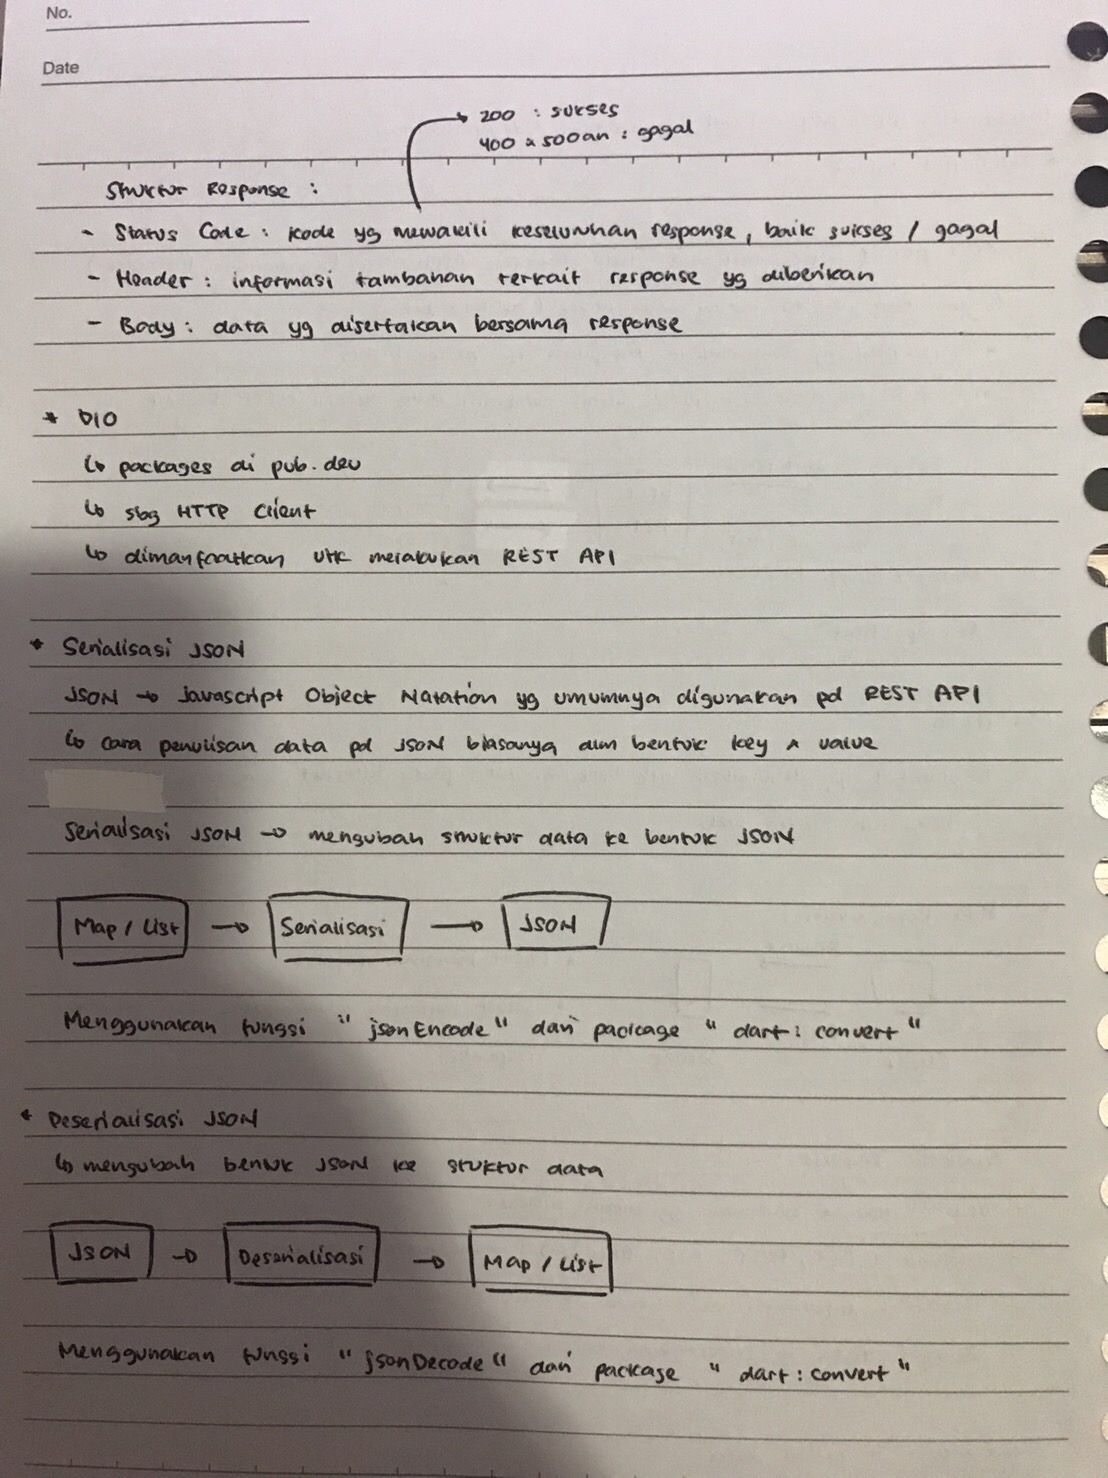 No.
Date
200 : sukses
400 & 500an : gagal
Struktur Response :
- Status Code : kode yg mewakili keseluruhan response, baik sukses / gagal
- Header : informasi tambahan terkait response yg diberikan
- Body : data yg disertakan bersama response
* DIO
↳ packages di pub.dev
↳ sbg HTTP Client
↳ dimanfaatkan utk melakukan REST API
* Serialisasi JSON
JSON → Javascript Object Notation yg umumnya digunakan pd REST API
↳ cara penulisan data pd JSON biasanya dlm bentuk key & value
Serialisasi JSON → mengubah struktur data ke bentuk JSON
Map / List → Serialisasi → JSON
Menggunakan fungsi "jsonEncode" dari package "dart : convert"
* Deserialisasi JSON
↳ mengubah bentuk JSON ke stuktur data
JSON → Deserialisasi → Map / List
Menggunakan fungsi "jsonDecode" dari package "dart : convert"